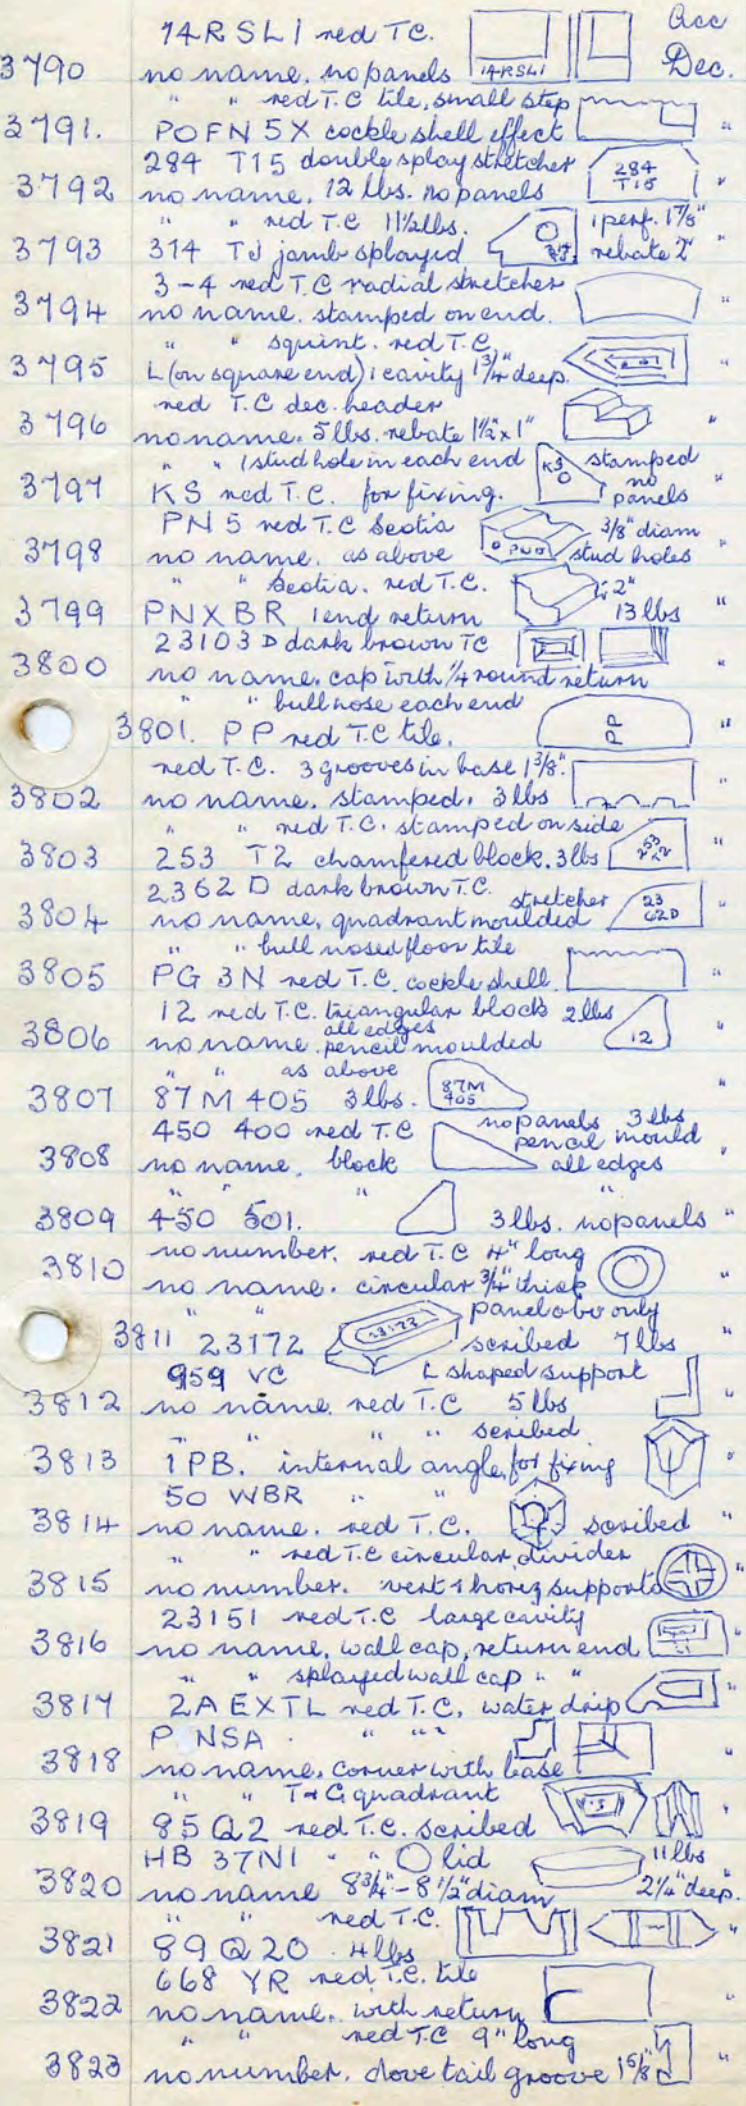 14RSL1 red T.C. Acc
3790 no name. no panels 14RSL1 Dec.
" " red T.C tile, small step
3791. POFN 5X cockle shell effect "
284 T15 double splay stretcher 284 T15
3792 no name. 12 lbs. no panels "
" " red T.C 11½lbs. 1 perf. 1⅞"
3793 314 TJ jamb splayed rebate 2" "
3-4 red T.C radial stretcher
3794 no name. stamped on end. "
" " squint. red T.C.
3795 L (on square end) 1 cavity 1¾" deep. "
red T.C dec. header
3796 no name. 5 lbs. rebate 1½" x 1" "
" " 1 stud hole in each end KS stamped no panels
3797 KS red T.C. for fixing. "
PN 5 red T.C Scotia 3/8" diam
3798 no name. as above stud holes "
" " Scotia. red T.C. 2"
3799 PNXBR 1 end return 13 lbs "
23103 D dark brown TC
3800 no name. cap with ¼ round return "
" " bull nose each end
3801. PP red T.C tile. PP "
red T.C. 3 grooves in base 1⅜".
3802 no name. stamped. 3 lbs "
" " red T.C. stamped on side
3803 253 T2 chamfered block. 3 lbs 253 T2 "
2362 D dark brown T.C. stretcher 23 62D
3804 no name, quadrant moulded "
" " bull nosed floor tile
3805 PG 3N red T.C. cockle shell "
12 red T.C. triangular block 2 lbs
3806 no name. all edges pencil moulded 12 "
" " as above
3807 87M 405 3 lbs. 87M 405 "
450 400 red T.C no panels 3 lbs
3808 no name. block pencil mould all edges "
" " " "
3809 450 501. 3 lbs. no panels "
no number. red T.C 4" long
3810 no name. circular ¾" thick "
" " panel obv only
3811 23172 23172 scribed 7 lbs "
959 VC L shaped support
3812 no name. red T.C 5 lbs "
" " " " scribed
3813 1PB. internal angle, for fixing "
50 WBR " "
3814 no name. red T.C. scribed "
" " red T.C circular divider
3815 no number. vert & horiz supports "
23151 red T.C large cavity
3816 no name, wall cap, return end "
" " splayed wall cap " "
3817 2A EXTL red T.C. water drip "
P NSA . " " "
3818 no name, corner with base "
" " T & G quadrant
3819 85 Q2 red T.C. scribed "
HB 37N1 " " O lid 11 lbs
3820 no name 8¾" - 8½" diam 2¼" deep.
" " red T.C.
3821 89 Q 20 . 4 lbs "
668 YR red T.C. tile
3822 no name. with return "
" " red TC 9" long
3823 no number. dove tail groove 1⅝" "